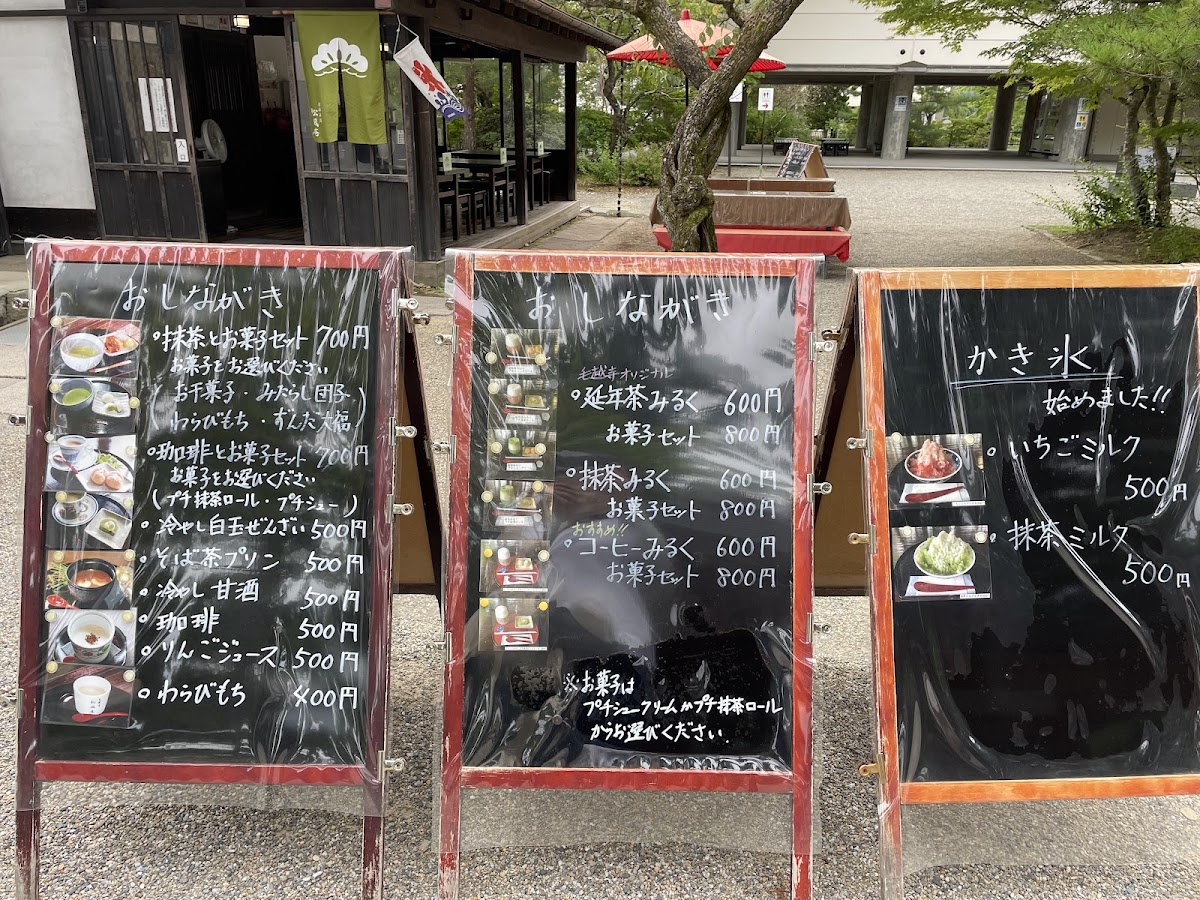 おしながき
・抹茶とお菓子セット 700円
お菓子をお選びください
(お干菓子・みたらし団子・
わらびもち・ずんだ大福)
・珈琲とお菓子セット 700円
お菓子をお選びください
(プチ抹茶ロール・プチシュー)
・冷やし白玉ぜんざい 500円
・そば茶プリン 500円
・冷やし甘酒 500円
・珈琲 500円
・りんごジュース 500円
・わらびもち 400円
おしながき
毛越寺オリジナル
・延年茶みるく 600円
お菓子セット 800円
・抹茶みるく 600円
お菓子セット 800円
おすすめ!!
・コーヒーみるく 600円
お菓子セット 800円
※お菓子は
プチシュークリームかプチ抹茶ロール
からお選びください.
かき氷
始めました!!
・いちごミルク
500円
・抹茶ミルク
500円